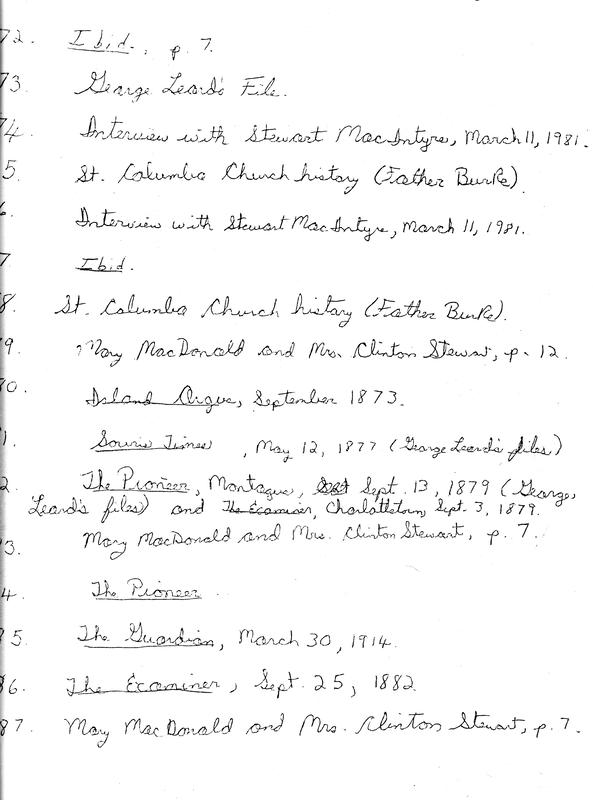 72. Ibid., p. 7.
73. George Leard's File.
74. Interview with Stewart MacIntyre, March 11, 1981.
5. St. Columba Church history (Father Burke)
6. Interview with Stewart MacIntyre, March 11, 1981.
7 Ibid.
8. St. Columba Church history (Father Burke).
9. Mary MacDonald and Mrs. Clinton Stewart, p. 12.
80. Island Argus, September 1873.
1. Souris Times, May 12, 1877 (George Leard's files)
2. The Pioneer, Montague, Sept. 13, 1879 (George
Leard's files) and The Examiner, Charlottetown, Sept. 3, 1879.
3. Mary MacDonald and Mrs. Clinton Stewart, p. 7.
4. The Pioneer
85. The Guardian, March 30, 1914.
86. The Examiner, Sept. 25, 1882
87. Mary MacDonald and Mrs. Clinton Stewart, p. 7.